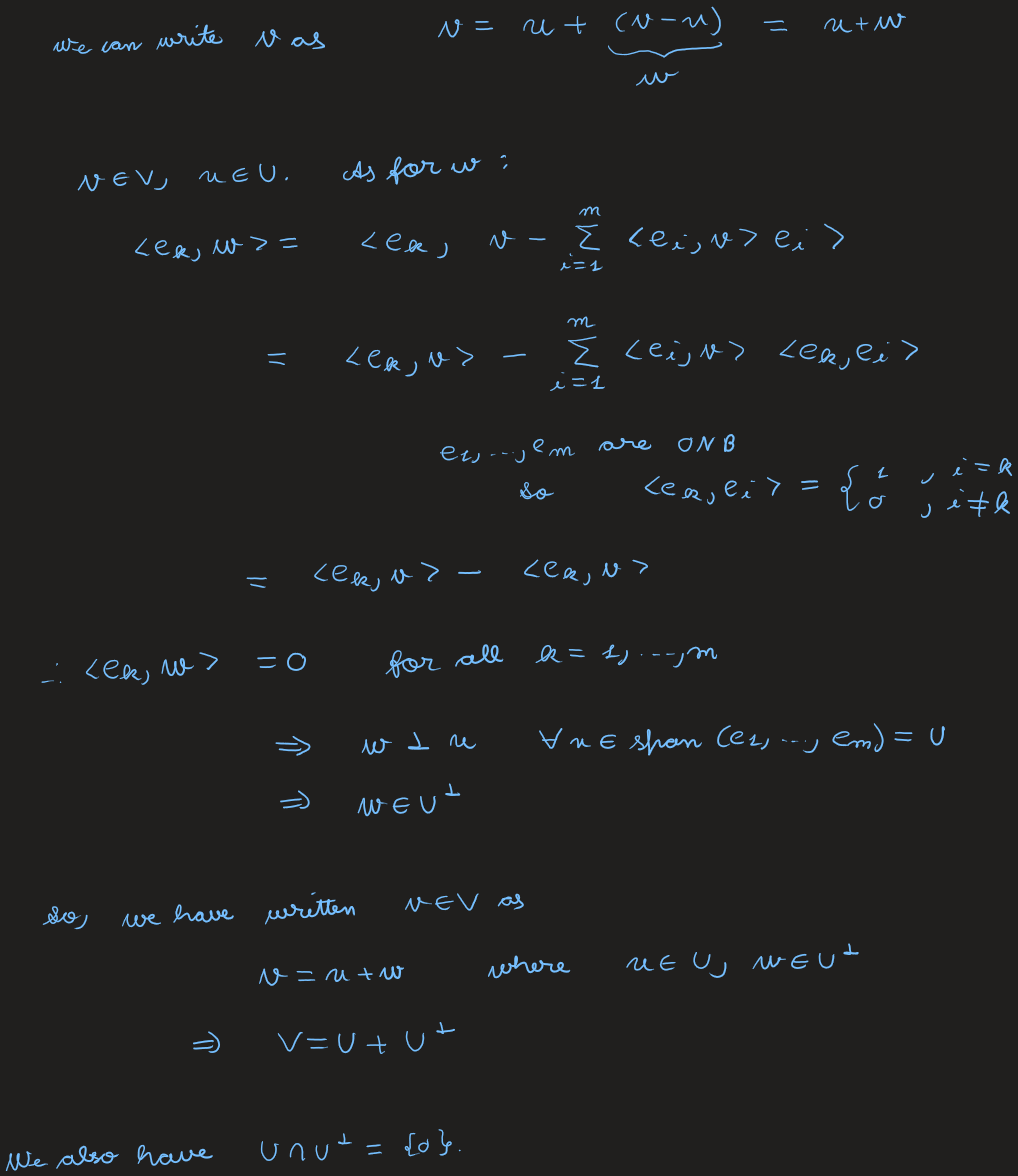 we can write v as v = u + (v-u) = u+w
w
v∈V, u∈U. As for w :
<eₖ, w> = <eₖ, v - Σ_{i=1}^{m} <eᵢ, v> eᵢ >
= <eₖ, v> - Σ_{i=1}^{m} <eᵢ, v> <eₖ, eᵢ>
e₁, ..., eₘ are ONB
so <eₖ, eᵢ> = { 1 , i = k
0 , i ≠ k
= <eₖ, v> - <eₖ, v>
∴ <eₖ, w> = 0 for all k = 1, ..., m
⇒ w ⊥ u ∀ u ∈ span (e₁, ..., eₘ) = U
⇒ w ∈ U^⊥
so, we have written v∈V as
v = u + w where u ∈ U, w ∈ U^⊥
⇒ V = U + U^⊥
We also have U ∩ U^⊥ = {0}.